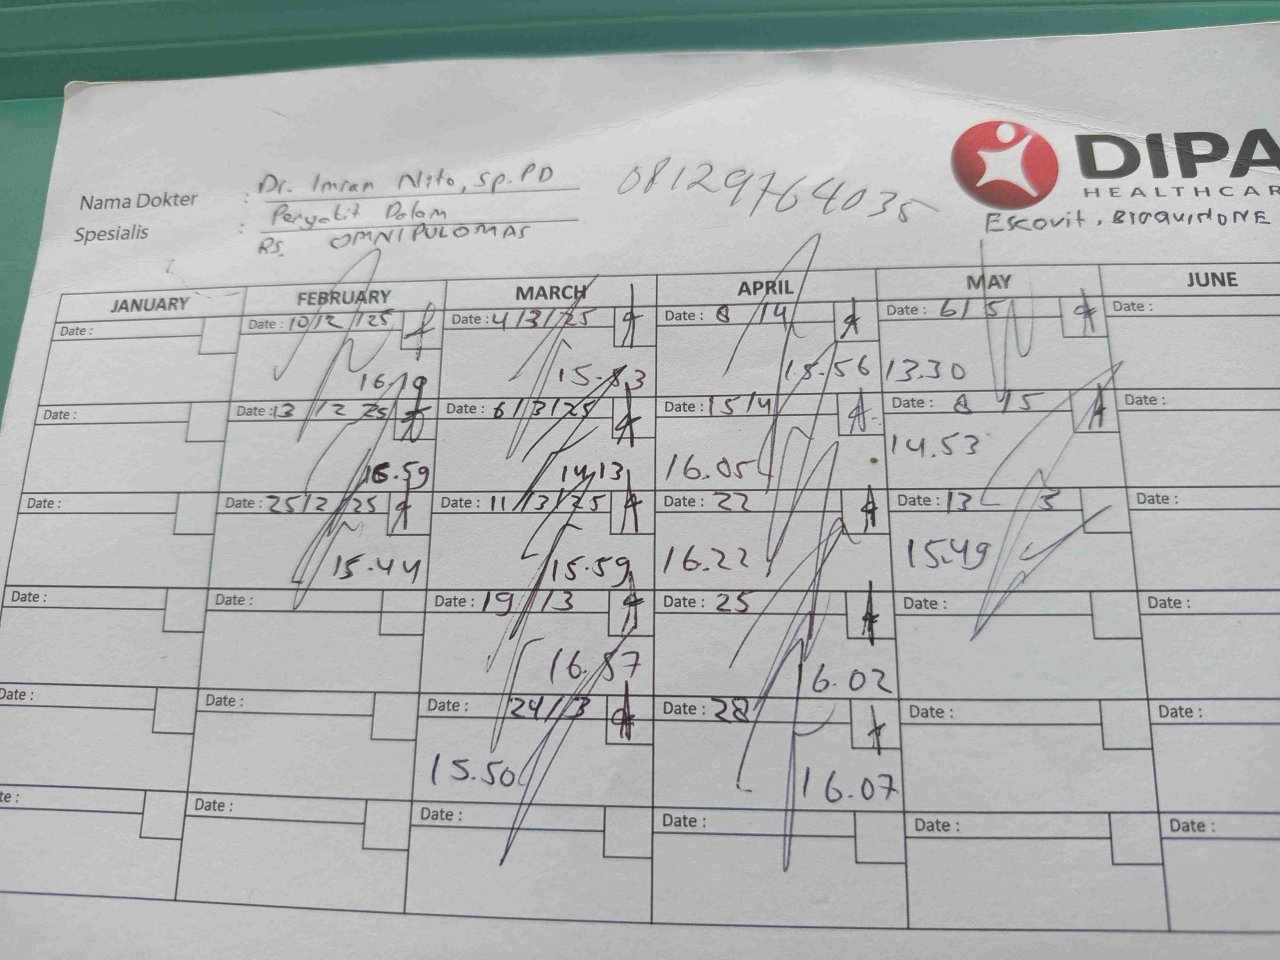 DIPA
HEALTHCAR
Nama Dokter : Dr. Imran Nito, Sp.PD 08129764035
Spesialis : Penyakit Dalam
RS. OMNI PULOMAS
Escovit, BIOQUINONE
JANUARY FEBRUARY MARCH APRIL MAY JUNE
Date : Date : 10/2/25 Date : 4/3/25 Date : 8/4 Date : 6/5 Date :
16.19 15.53 15.56 13.30
Date : Date : 13/2 25 Date : 6/3/25 Date : 15/4 Date : 8/5 Date :
15.59 14.13 16.05 14.53
Date : Date : 25/2/25 Date : 11/3/25 Date : 22 Date : 13 5 Date :
15.44 15.59 16.22 15.49
Date : Date : Date : 19/3 Date : 25 Date : Date :
16.57 16.02
Date : Date : Date : 24/3 Date : 28 Date : Date :
15.50 16.07
te : Date : Date : Date : Date : Date :